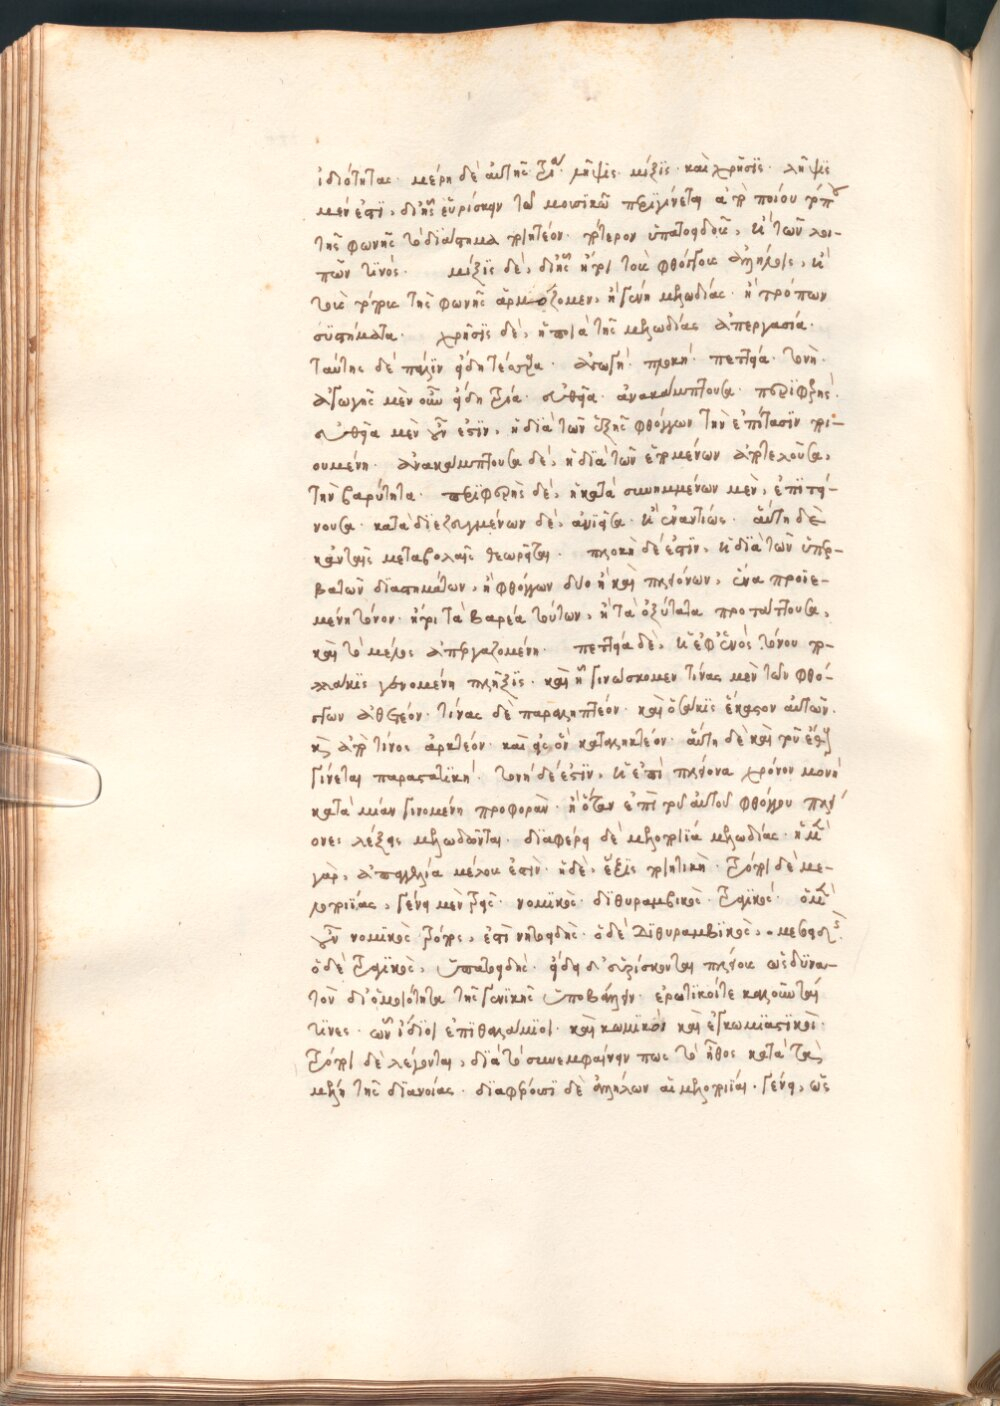 ἰδιότητας· μέρη δὲ αὐτῆς τρία· λῆψις· μίξις· καὶ χρῆσις· λῆψις
μέν ἐστι, δι' ἧς εὑρίσκειν τῷ μουσικῷ περιγίνεται ἀπὸ ποίου τόπου
τῆς φωνῆς τὸ διάστημα ποιητέον· πότερον ὑπατοειδοῦς, ἢ τῶν λοι-
πῶν τινός· μίξις δὲ, δι' ἧς ἤτοι τοὺς φθόγγους ἀλλήλοις, ἢ
τοὺς τόπους τῆς φωνῆς ἁρμόζομεν, ἢ γένη μελωδίας· ἢ τρόπων
συστήματα· χρῆσις δὲ, ἡ ποιὰ τῆς μελωδίας ἀπεργασία·
ταύτης δὲ πάλιν εἴδη τέσσαρα· ἀγωγή· πλοκή· πεττεία· τονή·
ἀγωγῆς μὲν οὖν εἴδη τρία· εὐθεῖα· ἀνακάμπτουσα· περιφερής·
εὐθεῖα μὲν οὖν ἐστιν, ἡ διὰ τῶν ἑξῆς φθόγγων τὴν ἐπίτασιν ποι-
ουμένη· ἀνακάμπτουσα δὲ, ἡ διὰ τῶν ἑπομένων ἀποτελοῦσα,
τὴν βαρύτητα· περιφερὴς δὲ, ἡ κατὰ συνημμένων μὲν, ἐπιτεί-
νουσα· κατὰ διεζευγμένων δὲ, ἀνιεῖσα· ἢ ἐναντίως· αὕτη δὲ
κἀν ταῖς μεταβολαῖς θεωρεῖται· πλοκὴ δέ ἐστιν, ἡ διὰ τῶν ὑπερ-
βατῶν διαστημάτων, ἢ φθόγγων δύο ἢ καὶ πλειόνων, ἕνα προϊε-
μένη τόνον· ἤτοι τὰ βαρέα τούτων, ἢ τὰ ὀξύτατα προτάττουσα,
καὶ τὸ μέλος ἀπεργαζομένη· πεττεία δὲ, ἡ ἐφ' ἑνὸς τόνου πο-
λλάκις γινομένη πλῆξις· καὶ ᾗ γινώσκομεν τίνας μὲν τῶν φθό-
γγων ἀφετέον· τίνας δὲ παραληπτέον· καὶ ὁσάκις ἕκαστον αὐτῶν.
καὶ ἀπὸ τίνος ἀρκτέον· καὶ εἰς ὃν καταληκτέον· αὕτη δὲ καὶ τοῦ ἤθους
γίνεται παραστατική· τονὴ δέ ἐστιν, ἡ ἐπὶ πλείονα χρόνον μονὴ
κατὰ μίαν γινομένη προφορὰν· ἢ ὅταν ἐπὶ τοῦ αὐτοῦ φθόγγου πλεί
ονες λέξεις μελωδῶνται· διαφέρει δὲ μελοποιΐα μελωδίας· ἡ μὲν
γὰρ, ἀπαγγελία μέλους ἐστὶν· ἡ δὲ, ἕξις ποιητικὴ· τρόποι δὲ με-
λοποιΐας, γένει μὲν τρεῖς· νομικὸς· διθυραμβικὸς· τραγικός· ὁ μὲν
οὖν νομικὸς τρόπος, ἐστὶ νητοειδής· ὁ δὲ διθυραμβικὸς, μεσοειδής.
ὁ δὲ τραγικὸς, ὑπατοειδής· εἴδει δ' εὑρίσκονται πλείους ὡς δυνα-
τὸν δι' ὁμοιότητα τῆς γενικῆς ὑποβάλλειν· ἐρωτικοί τε καλοῦνταί
τινες· ὧν ἴδιοι ἐπιθαλάμιοι· καὶ κωμικοὶ καὶ ἐγκωμιαστικοὶ·
τρόποι δὲ λέγονται, διὰ τὸ συνεμφαίνειν πως τὸ ἦθος κατὰ τὰ
μέλη τῆς διανοίας· διαφέρουσι δὲ ἀλλήλων αἱ μελοποιΐαι· γένει, ὡς